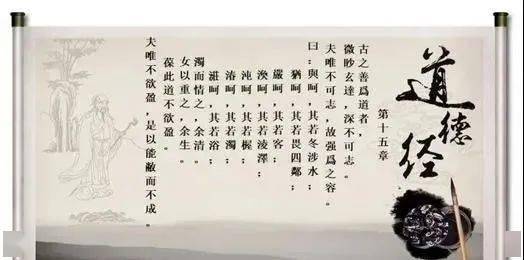 道德经
第十五章
古之善爲道者，
微眇玄達，深不可志。
夫唯不可志，故强爲之容。
曰：與呵，其若冬涉水；
猶呵，其若畏四鄰；
嚴呵，其若客；
渙呵，其若淩澤；
沌呵，其若樸；
湷呵，其若濁；
湛呵，其若浴；
濁而情之，余清。
女以重之，余生。
葆此道不欲盈。
夫唯不欲盈，是以能敝而不成。